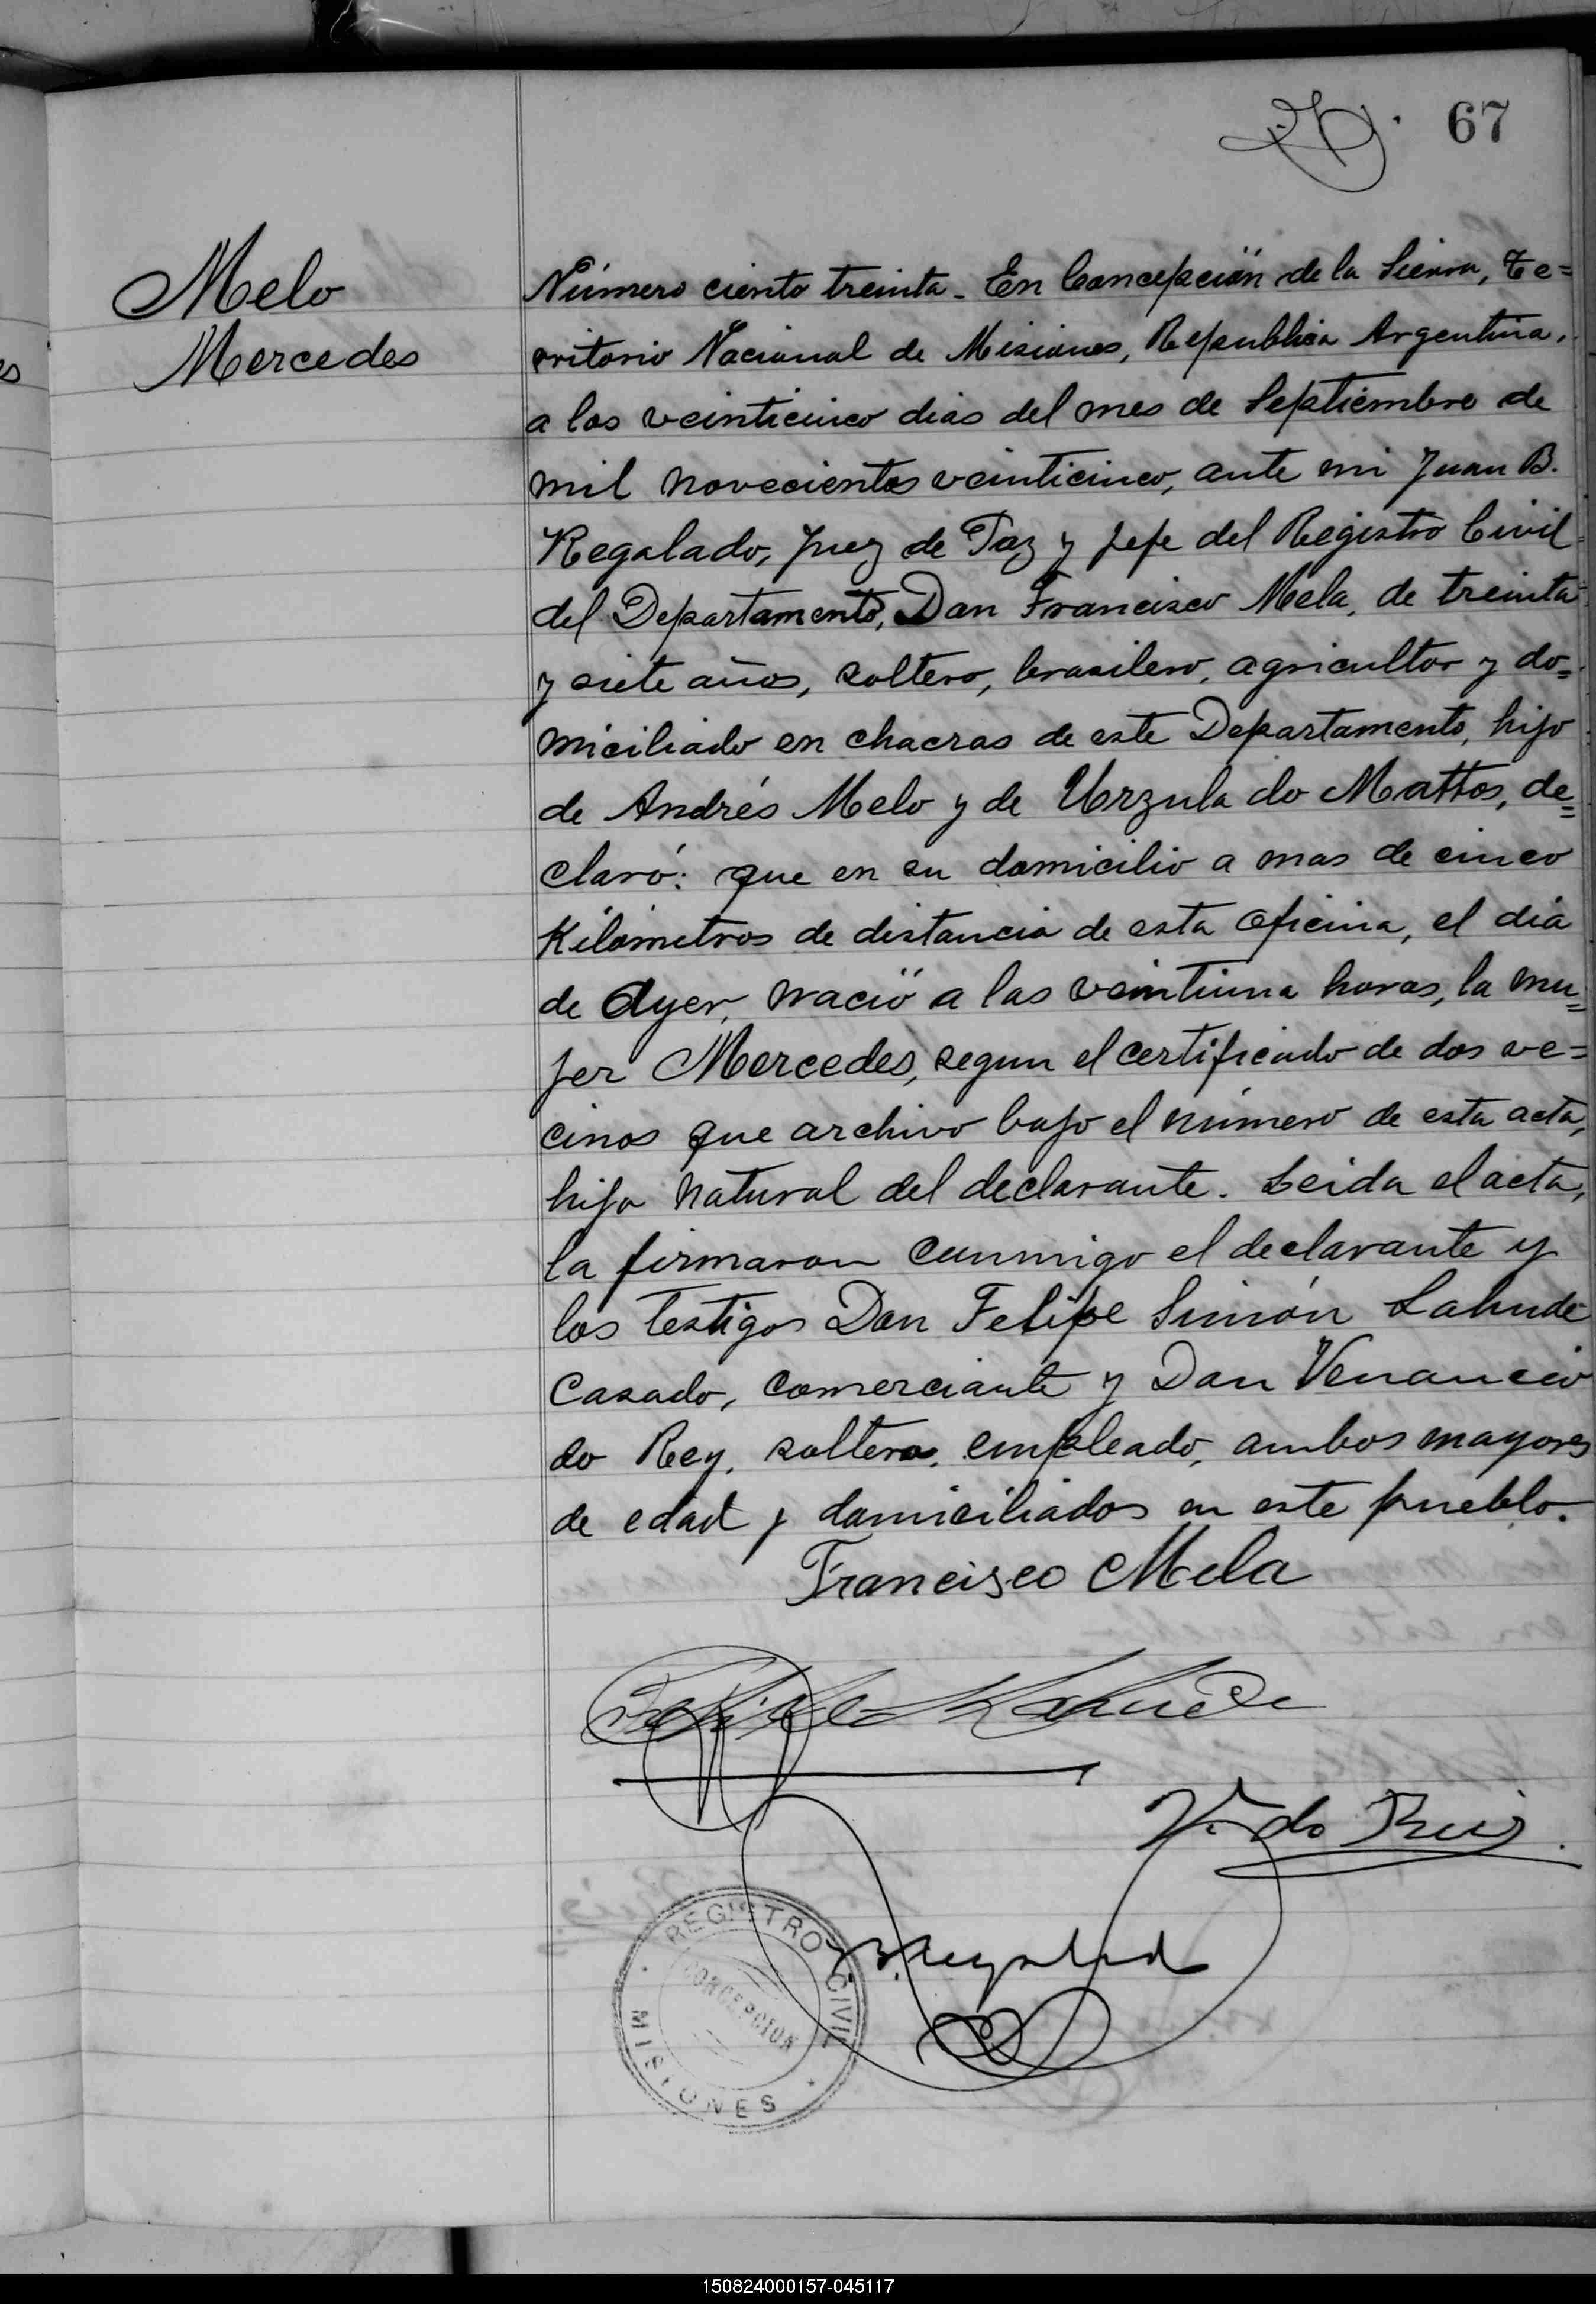 67
Melo
Mercedes
Número ciento treinta - En Concepción de la Sierra, Te=
rritorio Nacional de Misiones, Republica Argentina,
a los veinticinco dias del mes de Septiembre de
mil novecientos veinticinco, ante mi Juan B.
Regalado, Juez de Paz y Jefe del Registro Civil
del Departamento, Don Francisco Mela, de treinta
y siete años, soltero, brasilero, agricultor y do=
miciliado en chacras de este Departamento, hijo
de Andrés Melo y de Urzula do Mattos, de=
claró: que en su domicilio a mas de cinco
Kilometros de distancia de esta Oficina, el dia
de Ayer, nació a las veintiuna horas, la mu=
jer Mercedes, segun el certificado de dos ve=
cinos que archivo bajo el número de esta acta,
hija natural del declarante. Leida el acta,
la firmaron conmigo el declarante y
los testigos Don Felipe Simón Lahude
Casado, comerciante y Don Venancio
do Rey, soltero, empleado, ambos mayores
de edad y domiciliados en este pueblo.
Francisco Mela
Felipe S. Lahude
V. do Rey
B. Regalado
REGISTRO CIVIL
CONCEPCION
MISIONES
150824000157-045117